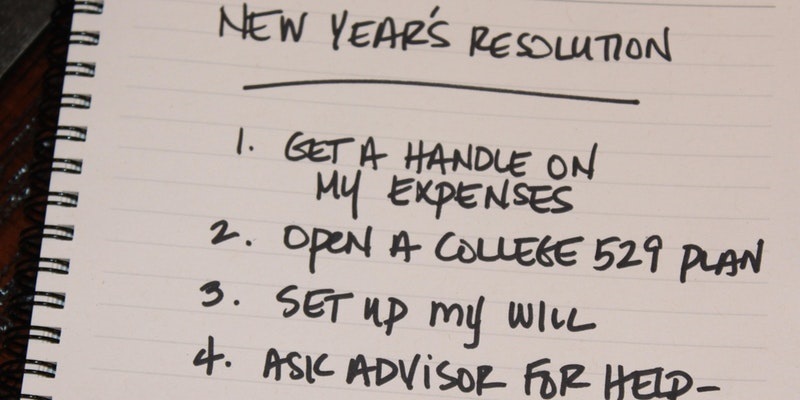 NEW YEAR'S RESOLUTION
1. GET A HANDLE ON
MY EXPENSES
2. OPEN A COLLEGE 529 PLAN
3. SET UP MY WILL
4. ASK ADVISOR FOR HELP-